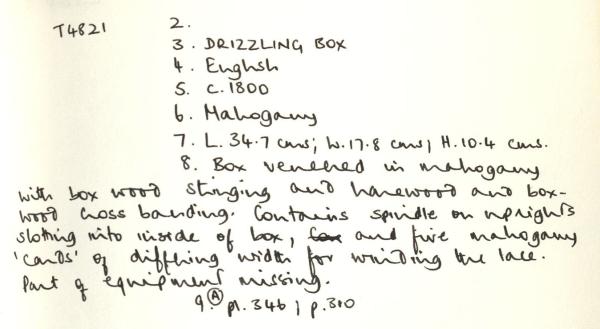 T4821 2.
3. DRIZZLING BOX
4. English
5. c.1800
6. Mahogany
7. L. 34.7 cms; W. 17.8 cms; H. 10.4 cms.
8. Box veneered in mahogany
with box wood stringing and harewood and box-
wood cross banding. Contains spindle on uprights
slotting into inside of box, and five mahogany
'cards' of differing width for winding the lace.
Part of equipment missing.
9. (A) pl. 346; p. 310